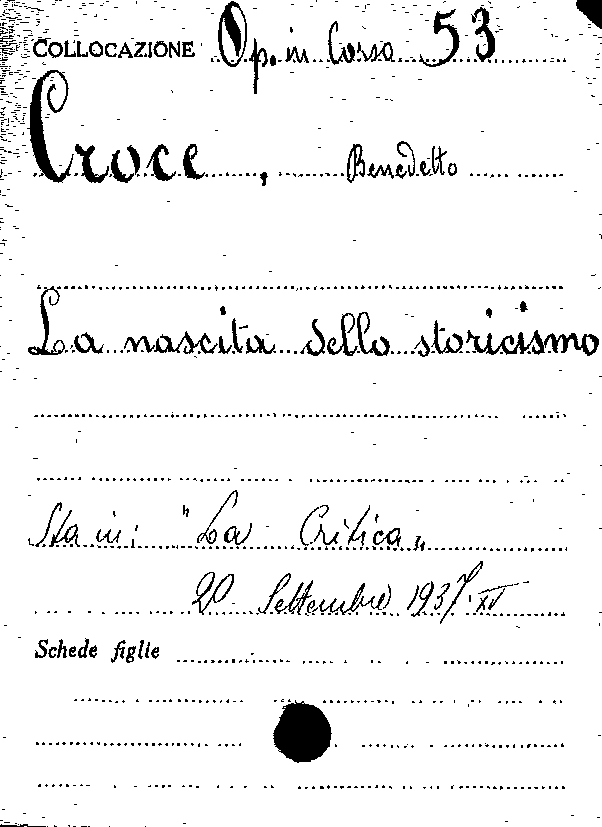 COLLOCAZIONE Op. in Corso 53
Croce, Benedetto
La nascita dello storicismo
Sta in: "La Critica"
20 Settembre 1937. XV
Schede figlie